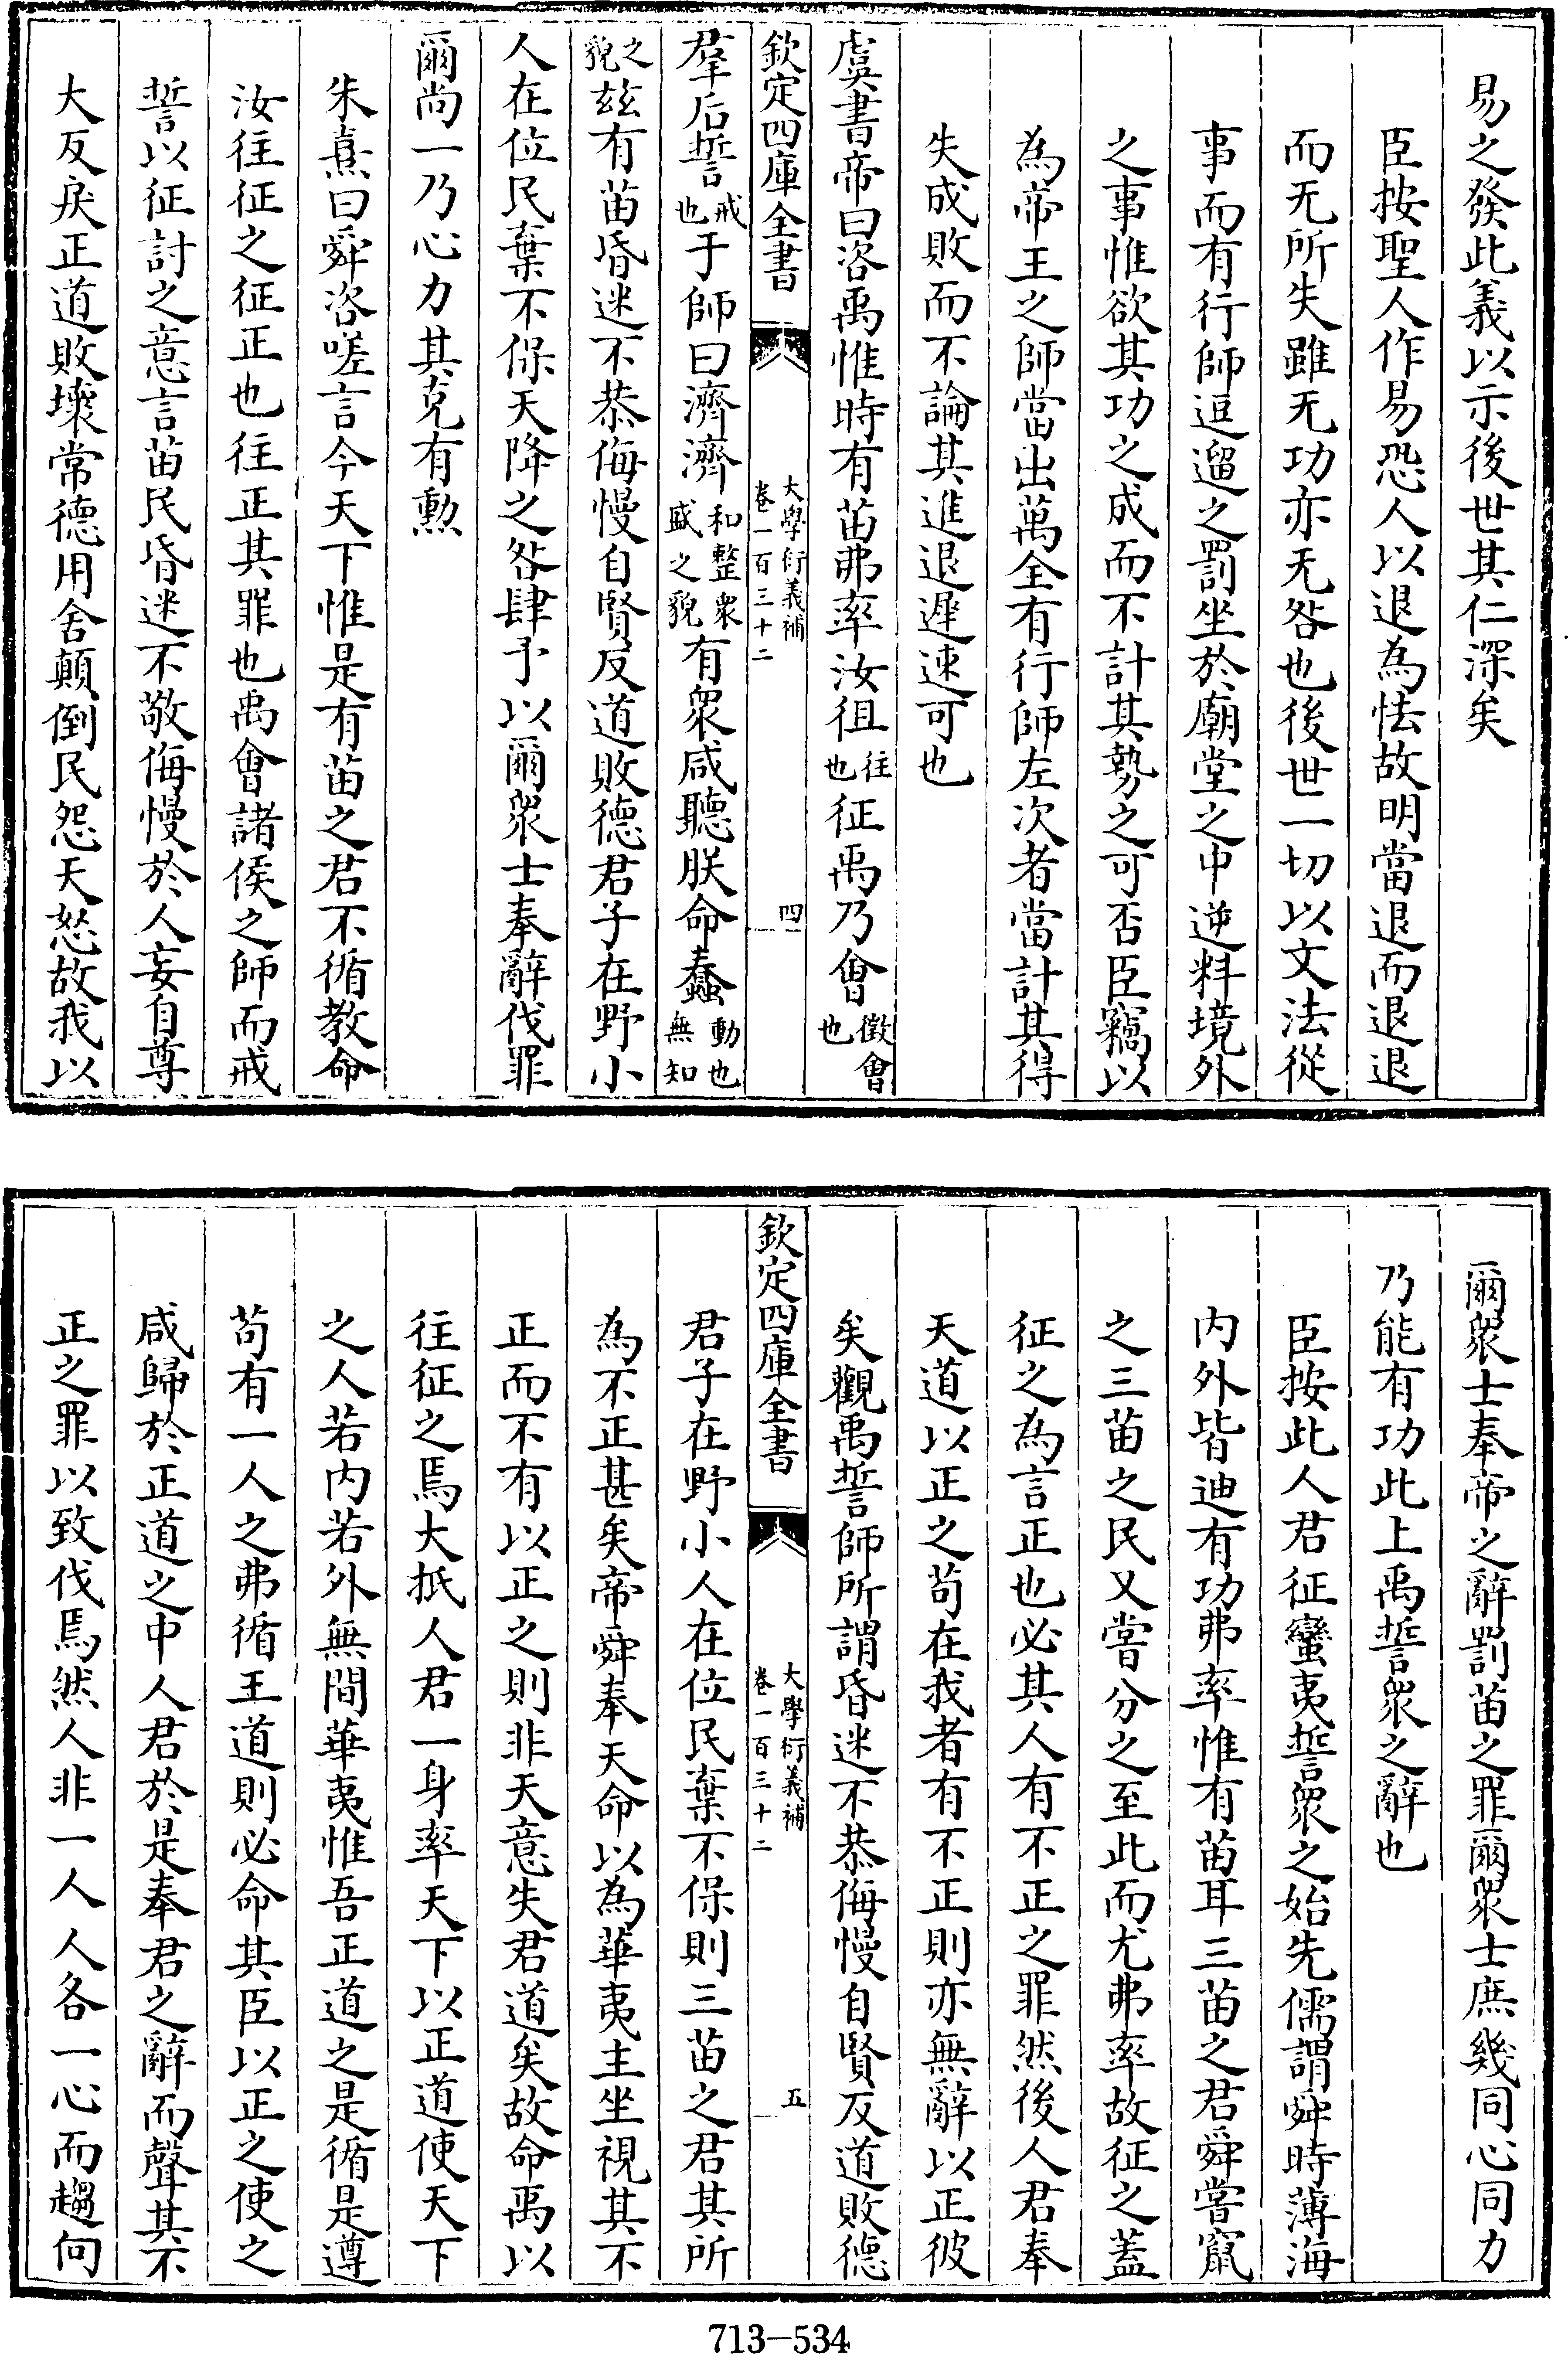 易之發此義以示後世其仁深矣
臣按聖人作易恐人以退為怯故明當退而退退
而无所失雖无功亦无咎也後世一切以文法從
事而有行師逗遛之罰坐於廟堂之中逆料境外
之事惟欲其功之成而不計其勢之可否臣竊以
為帝王之師當出萬全有行師左次者當計其得
失成敗而不論其進退遲速可也
虞書帝曰咨禹惟時有苗弗率汝徂往也征禹乃會徵會也
欽定四庫全書
大學衍義補
卷一百三十二
四
羣后誓戒也于師曰濟濟和整衆盛之貌有衆咸聽朕命蠢動也無知
之貌玆有苗昏迷不恭侮慢自賢反道敗德君子在野小
人在位民棄不保天降之咎肆予以爾衆士奉辭伐罪
爾尚一乃心力其克有勲
朱熹曰舜咨嗟言今天下惟是有苗之君不循教命
汝往征之征正也往正其罪也禹會諸侯之師而戒
誓以征討之意言苗民昏迷不敬侮慢於人妄自尊
大反戾正道敗壞常德用舍顛倒民怨天怒故我以
爾衆士奉帝之辭罰苗之罪爾衆士庶幾同心同力
乃能有功此上禹誓衆之辭也
臣按此人君征蠻夷誓衆之始先儒謂舜時薄海
内外皆迪有功弗率惟有苗耳三苗之君舜嘗竄
之三苗之民又嘗分之至此而尤弗率故征之蓋
征之為言正也必其人有不正之罪然後人君奉
天道以正之苟在我者有不正則亦無辭以正彼
矣觀禹誓師所謂昏迷不恭侮慢自賢反道敗德
欽定四庫全書
大學衍義補
卷一百三十二
五
君子在野小人在位民棄不保則三苗之君其所
為不正甚矣帝舜奉天命以為華夷主坐視其不
正而不有以正之則非天意失君道矣故命禹以
往征之焉大抵人君一身率天下以正道使天下
之人若内若外無間華夷惟吾正道之是循是遵
苟有一人之弗循王道則必命其臣以正之使之
咸歸於正道之中人君於是奉君之辭而聲其不
正之罪以致伐焉然人非一人人各一心而趨向
713-534